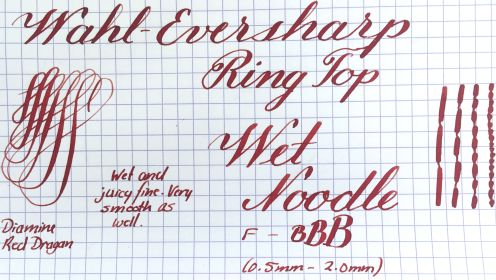 Wahl-Eversharp
Ring Top
Wet
Noodle
F - BBB
(0.5mm - 2.0mm)
Wet and
juicy fine. Very
smooth as
well.
Diamine
Red Dragan